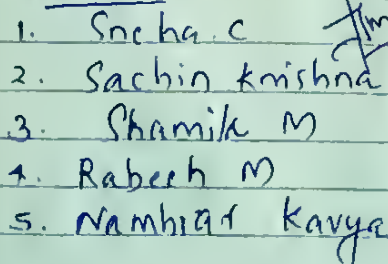 1. Sneha. C
2. Sachin Krishna
3. Shamil M
4. Rabeeh M
5. Nambiar Kavya